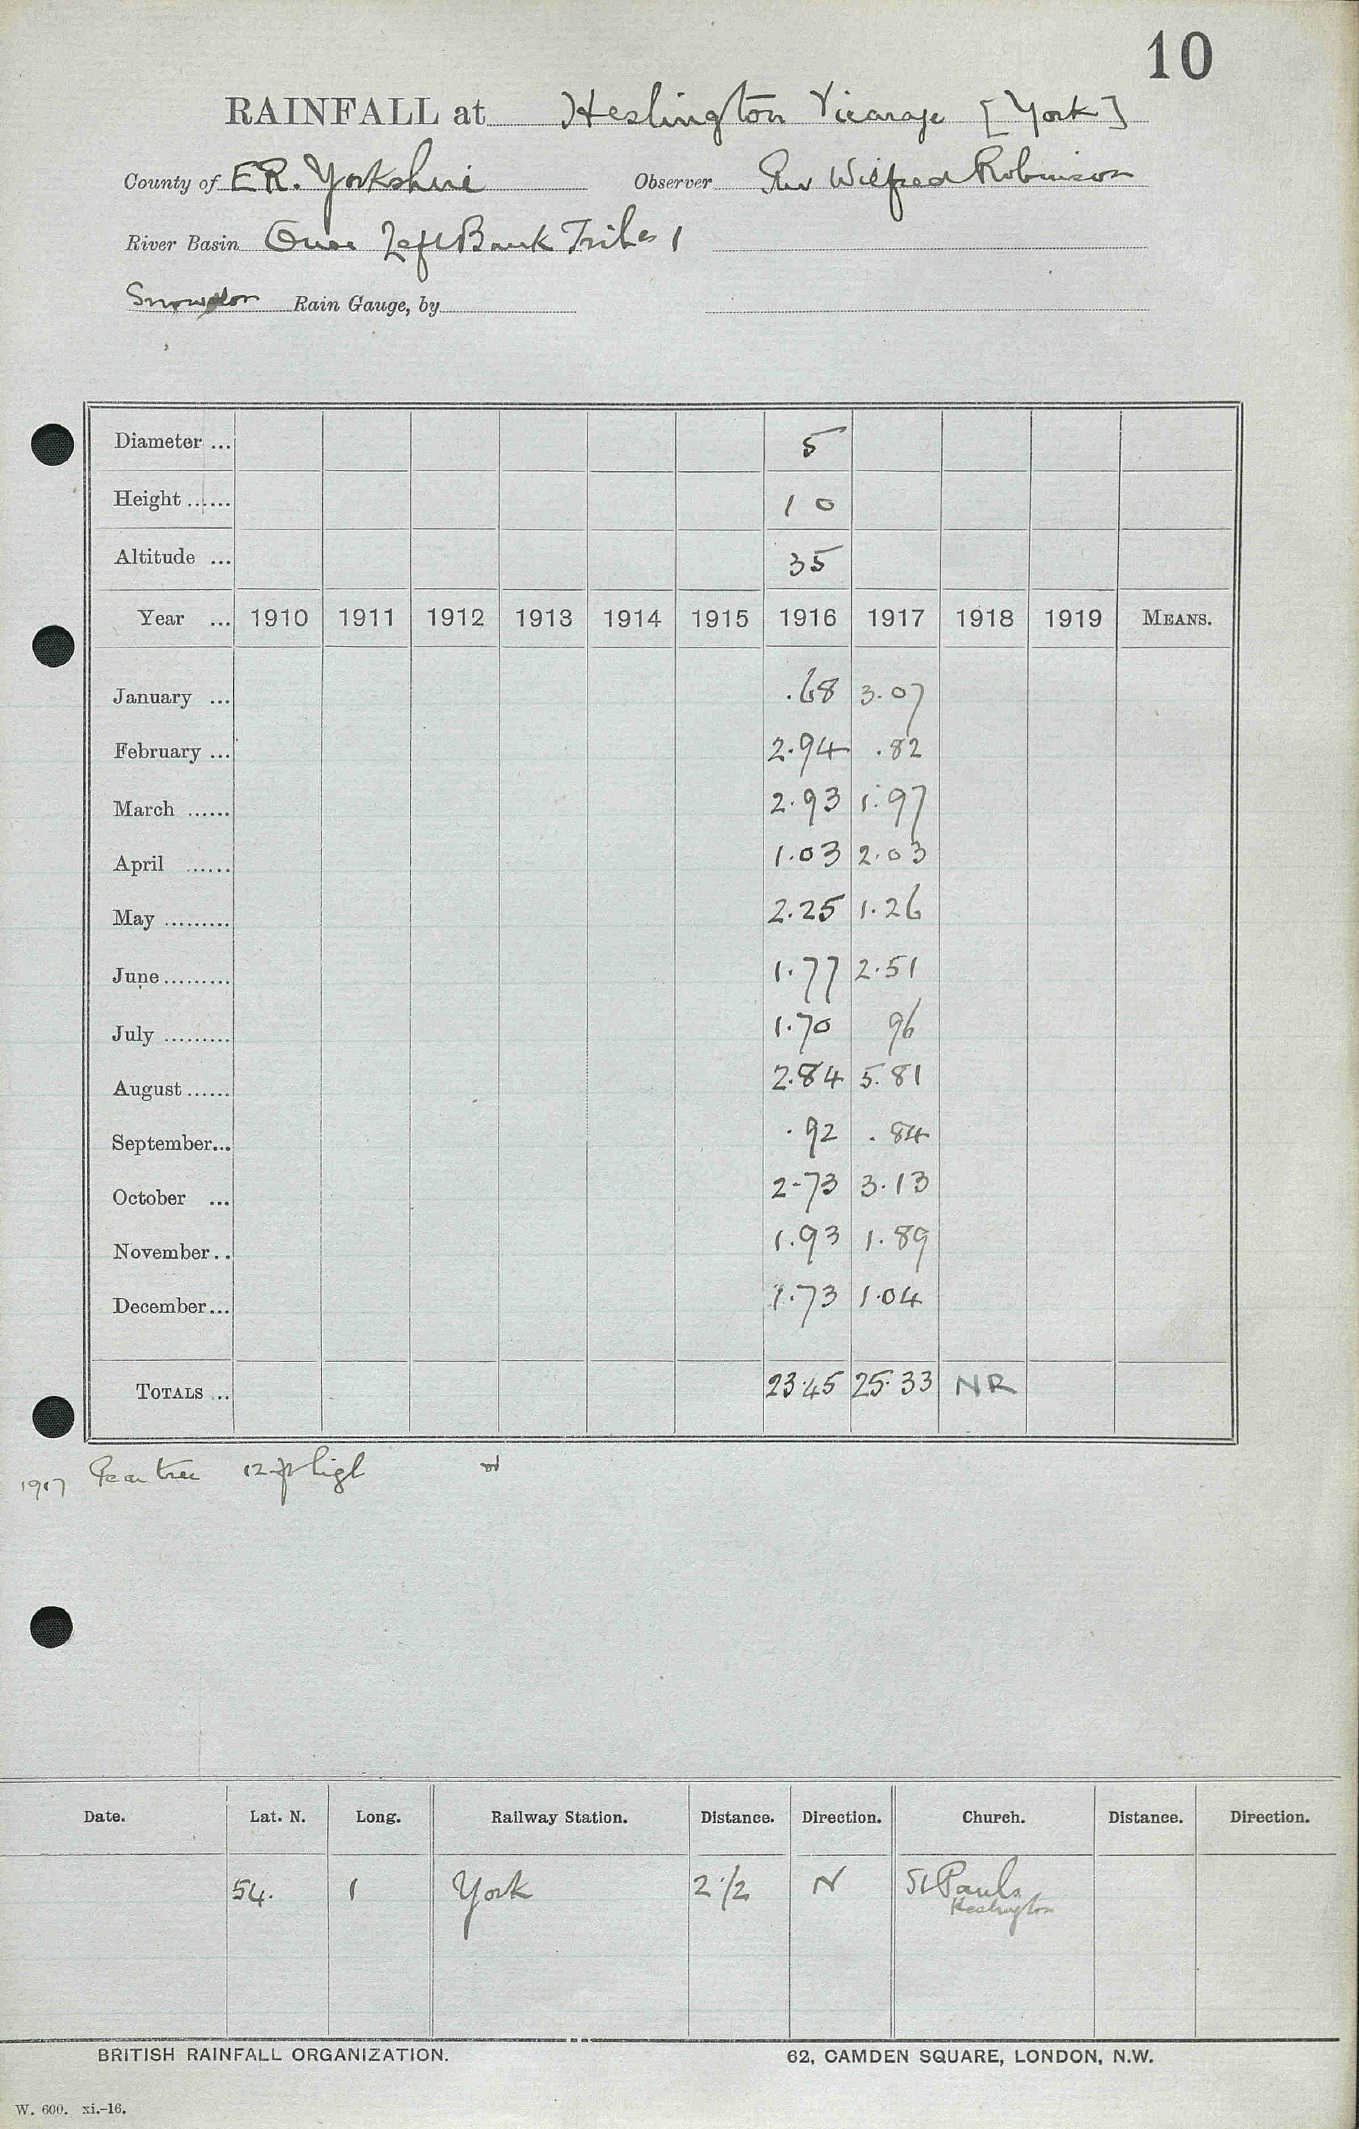 10
RAINFALL at Heslington Vicarage [York]
County of E.R. Yorkshire Observer Rev Wilfred Robinson
River Basin Ouse Left Bank Tribs 1
Snowdon Rain Gauge, by
Diameter ... 5
Height ...... 1 0
Altitude ... 35
Year ... 1910 1911 1912 1913 1914 1915 1916 1917 1918 1919 MEANS.
January ... .68 3.07
February ... 2.94 .82
March ...... 2.93 1.97
April ...... 1.03 2.03
May ......... 2.25 1.26
June ......... 1.77 2.51
July ......... 1.70 96
August ...... 2.84 5.81
September... .92 .84
October ... 2-73 3.13
November.. 1.93 1.89
December... 1.73 1.04
TOTALS ... 23.45 25.33 NR
1917 Pear tree 12 ft high
Date. Lat. N. Long. Railway Station. Distance. Direction. Church. Distance. Direction.
54. 1 York 2 1/2 N St Pauls
Heslington
BRITISH RAINFALL ORGANIZATION. 62, CAMDEN SQUARE, LONDON, N.W.
W. 600. xi.-16.